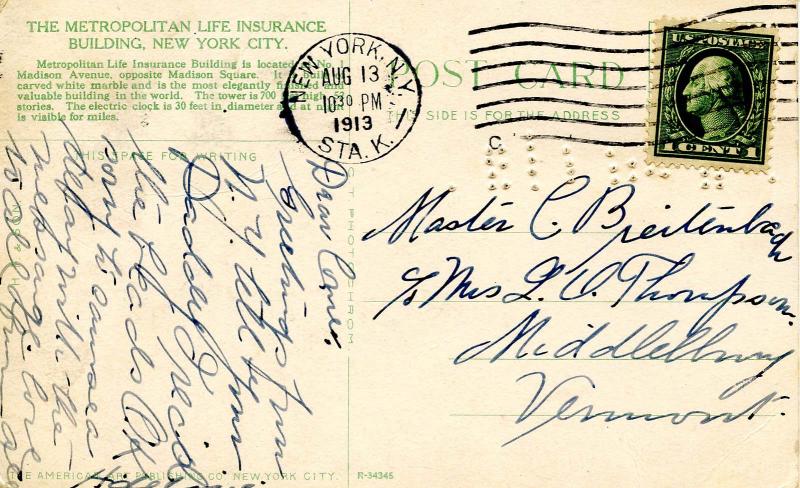 THE METROPOLITAN LIFE INSURANCE
BUILDING, NEW YORK CITY.
Metropolitan Life Insurance Building is located No. 1
Madison Avenue, opposite Madison Square. It
carved white marble and is the most elegantly finished and
valuable building in the world. The tower is 700 high, 52
stories. The electric clock is 30 feet in diameter and at night
is visible for miles.
NEW YORK, N.Y.
AUG 13
10 30 PM
1913
STA. K.
POST CARD
THIS SIDE IS FOR THE ADDRESS
U.S. POSTAGE
1 CENT 1
C
THIS SPACE FOR WRITING
Dear
Greetings from
N.Y. tell
Daddy I rec'd
the beads O.K.
sorry to
delay with the
message love
to all from
Master C. Breitenbach
c/o Mrs L. O. Thompson
Middlebury
Vermont.
THE AMERICAN ART PUBLISHING CO. NEW YORK CITY.
R-34346